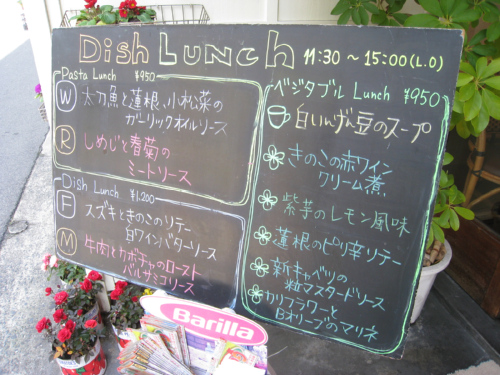 Dish Lunch 11:30 ~ 15:00 (L.O)
Pasta Lunch ¥950
W 太刀魚と蓮根、小松菜の
ガーリックオイルソース
R しめじと春菊の
ミートソース
Dish Lunch ¥1.200
F スズキときのこのソテー
白ワインバターソース
M 牛肉とカボチャのロースト
バルサミコソース
ベジタブル Lunch ¥950
白いんげん豆のスープ
きのこの赤ワイン
クリーム煮
紫芋のレモン風味
蓮根のピリ辛ソテー
新キャベツの
粒マスタードソース
カリフラワーと
B.オリーブのマリネ
Barilla